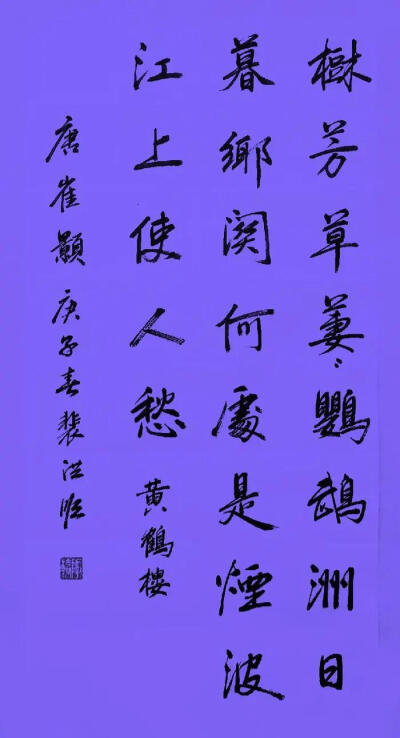 樹芳草萋〻鸚鵡洲日
暮鄉関何處是煙波
江上使人愁 黄鶴樓
唐崔顥 庚子春裴洪順